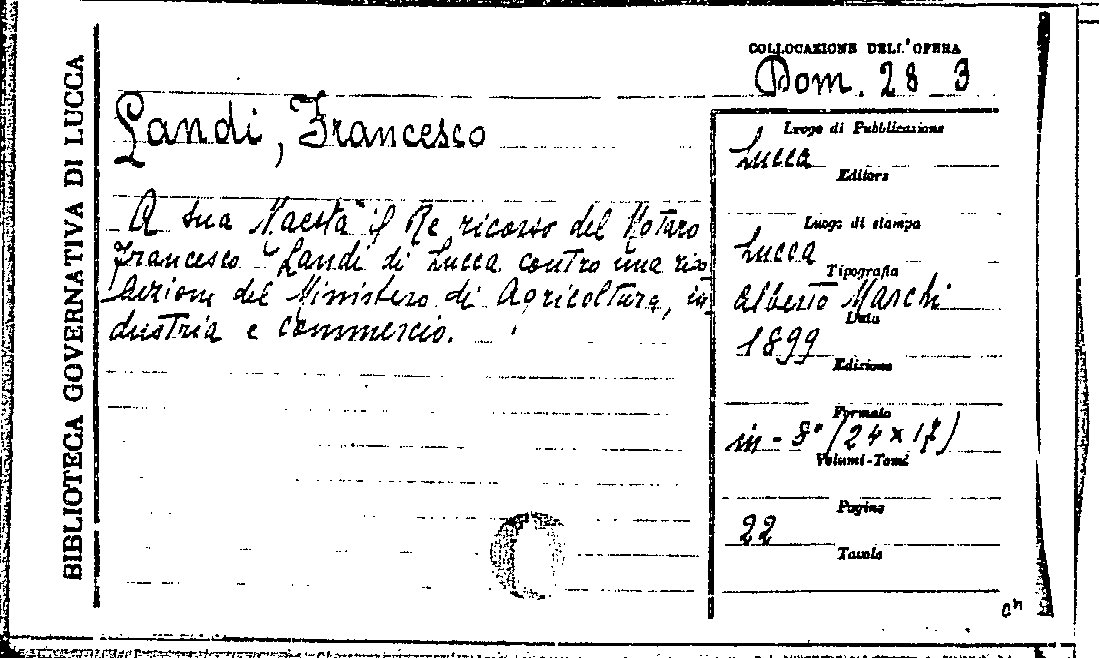 BIBLIOTECA GOVERNATIVA DI LUCCA
COLLOCAZIONE DELL'OPERA
Dom. 28_3
Landi, Francesco
A sua Maestà il Re ricorso del Notaro
Francesco Landi di Lucca contro una
del Ministero di Agricoltura, in
dustria e commercio.
Luogo di Pubblicazione
Lucca
Editore
Luogo di stampa
Lucca
Tipografia
Alberto Marchi
Data
1899
Edizione
Formato
in - 8° (24 x 17)
Volumi-Tomi
Pagine
22
Tavole